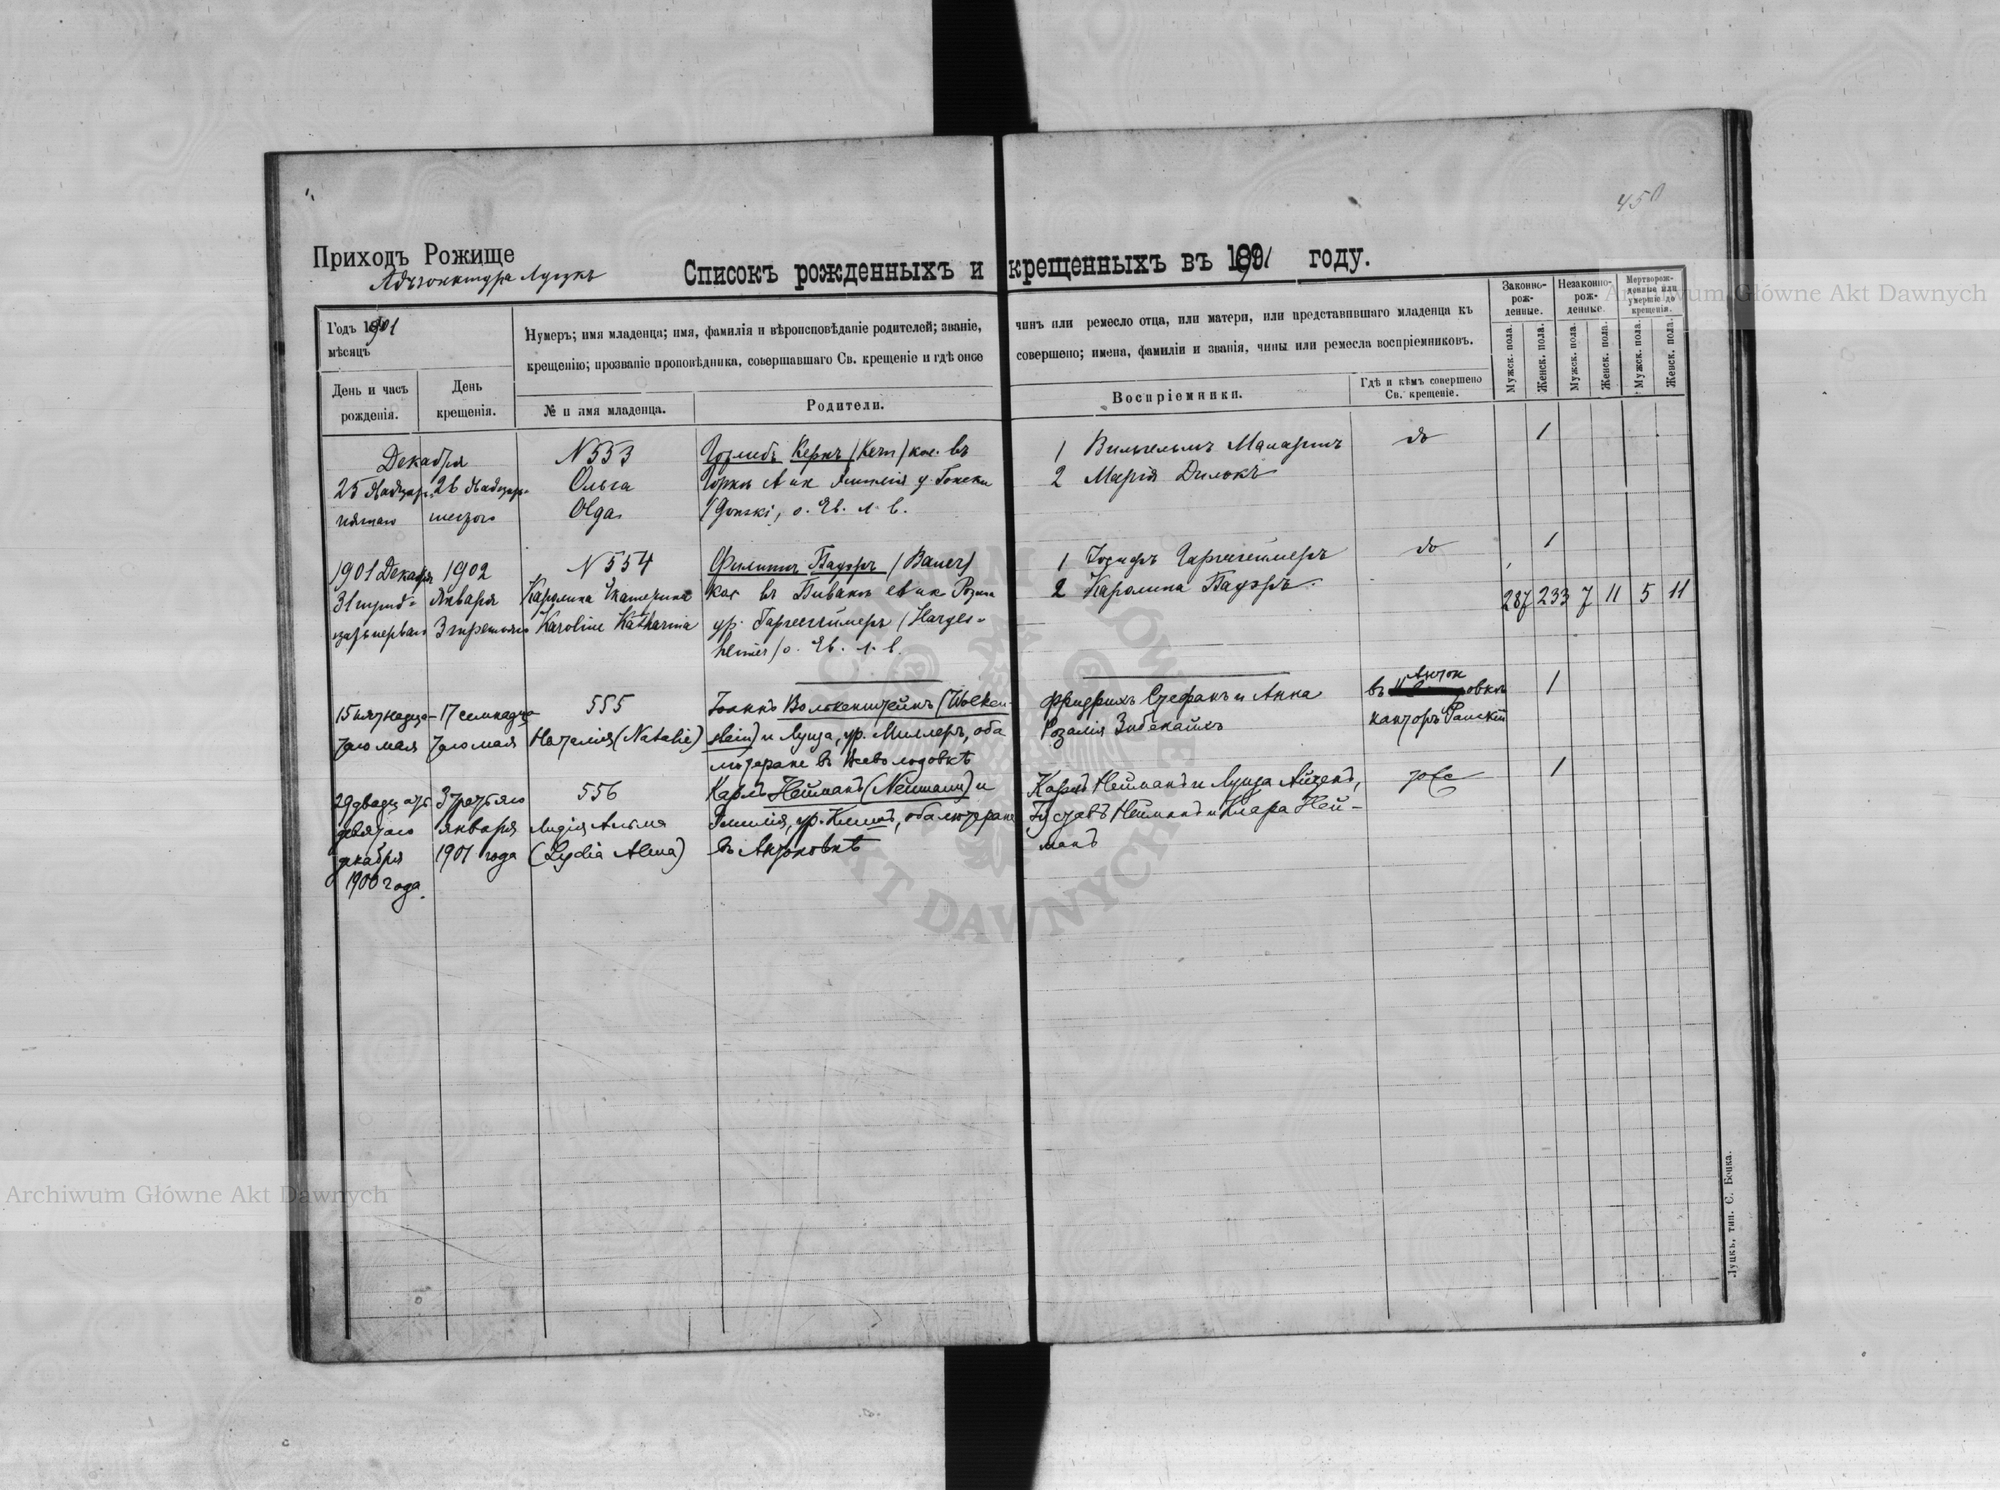 450
Приходъ Рожище
Адъюнктура Луцкъ
Списокъ рожденныхъ и крещенныхъ въ 1901 году.
Годъ 1901
мѣсяцъ
День и часъ рожденія.
День крещенія.
Нумеръ; имя младенца; имя, фамилія и вѣроисповѣданіе родителей; званіе, чинъ или ремесло отца, или матери, или представившаго младенца къ
крещенію; прозваніе проповѣдника, совершавшаго Св. крещеніе и гдѣ оное совершено; имена, фамиліи и званія, чины или ремесла воспріемниковъ.
№ и имя младенца.
Родители.
Воспріемники.
Гдѣ и кѣмъ совершено Св. крещеніе.
Законно-рож-денные.
Незаконно-рож-денные.
Мертворож-денные или умершіе до крещенія.
Мужск. пола.
Женск. пола.
Мужск. пола.
Женск. пола.
Мужск. пола.
Женск. пола.
Декабря
25 двадцать пятаго
26 двадцать шестого
N 553
Ольга
Olga
Готлибъ Кернъ (Kern) кол. въ
и Эмилія у. Гонски
(Gonski), о. Ев. л. в.
1 Вильгельмъ
2 Марія
до
1
1901 Декабря
31 тридцать перваго
1902
Января
3 третьяго
N 554
Каролина Екатерина
Karoline Katharina
Филиппъ Бауэръ (Bauer)
кол въ и Розина
ур. Гаргесгеймеръ (Harges-
heimer) о. Ев. л. в.
1 Іосифъ Гаргесгеймеръ
2 Каролина Бауэръ.
до
1
287 233 7 11 5 11
15 пятнадца-
таго мая
17 семнадца-
таго мая
555
Наталія (Natalie)
Іоаннъ Волькенштейнъ (Wolken-
stein) и Луиза, ур. Миллеръ, оба
лютеране въ Всеволодовкѣ
Фридрихъ Стефанъ и Анна
Розалія
въ Антоновкѣ
канторъ
1
29 двадцать
девятаго
декабря
1900 года.
3 третьяго
января
1901 года
556
Лидія Альма
(Lydia Alma)
Карлъ Нейманъ (Neumann) и
Эмилія, ур. оба лютеране
въ Антоновкѣ
Карлъ Нейманъ и Луиза
Густавъ Нейманъ и Клара Ней-
манъ
1
Луцкъ, тип. С. Бочка.
Archiwum Główne Akt Dawnych
Archiwum Główne Akt Dawnych
ARCHIWUM GŁÓWNE AKT DAWNYCH